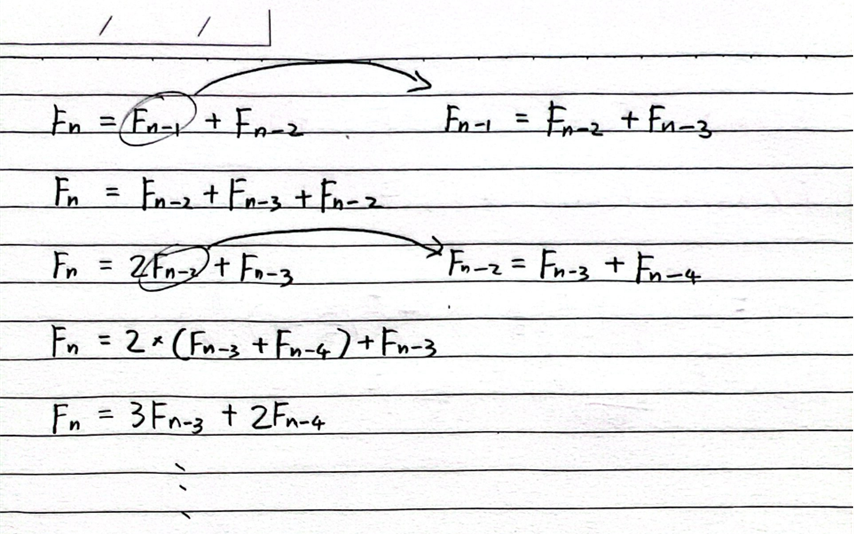 / /
Fₙ = Fₙ₋₁ + Fₙ₋₂ Fₙ₋₁ = Fₙ₋₂ + Fₙ₋₃
Fₙ = Fₙ₋₂ + Fₙ₋₃ + Fₙ₋₂
Fₙ = 2Fₙ₋₂ + Fₙ₋₃ Fₙ₋₂ = Fₙ₋₃ + Fₙ₋₄
Fₙ = 2 × (Fₙ₋₃ + Fₙ₋₄) + Fₙ₋₃
Fₙ = 3Fₙ₋₃ + 2Fₙ₋₄
⋮